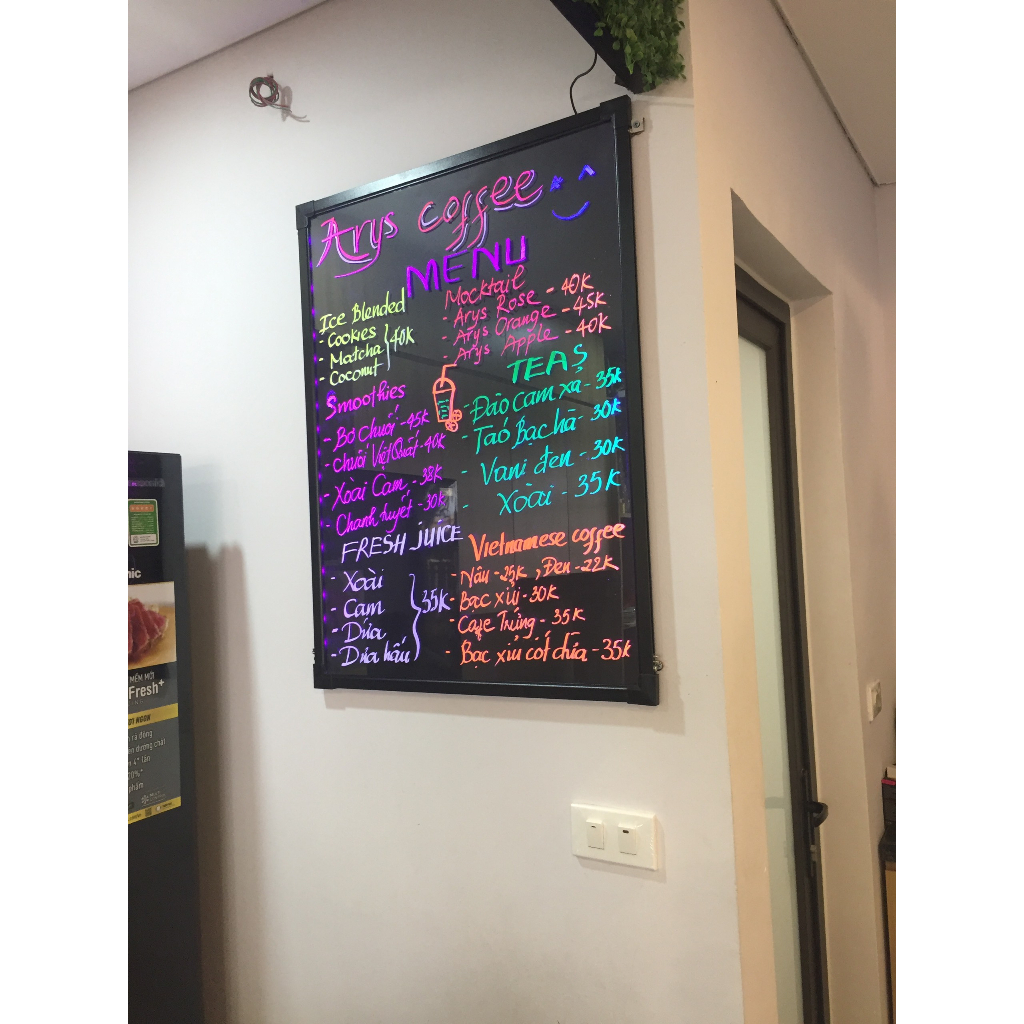 Arys coffee
MENU
Ice Blended
- Cookies
- Matcha
- Coconut
40k
Mocktail
- Arys Rose - 40k
- Arys Orange - 45k
- Arys Apple - 40k
Smoothies
- Bơ chuối - 45k
- Chuối Việt Quất - 40k
- Xoài Cam - 38k
- Chanh tuyết - 30k
TEAS
- Đào cam xả - 35k
- Táo Bạc hà - 30k
- Vani đen - 30k
- Xoài - 35k
FRESH JUICE
- Xoài
- Cam
- Dứa
- Dưa hấu
35k
Vietnamese coffee
- Nâu - 25k, Đen - 22k
- Bạc xỉu - 30k
- Cafe Trứng - 35k
- Bạc xỉu cốt dừa - 35k
nic
MỀM MỚI
Fresh+
ƠI NGON
ra đông
dưỡng chất